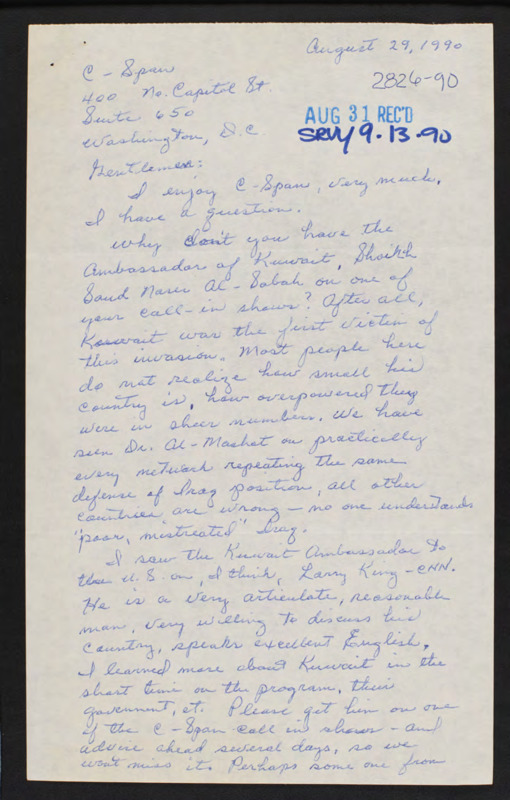 August 29, 1990
C-Span
2826-90
400 No. Capitol St.
Suite 650
AUG 31 REC'D
Washington, D.C.
SRVY 9.13.90
Gentlemen:
I enjoy C-Span, very much.
I have a question.
Why don't you have the
Ambassador of Kuwait, Shaikh
Saud Nasir Al-Sabah on one of
your call-in shows? After all,
Kuwait was the first victim of
this invasion. Most people here
do not realize how small his
country is, how overpowered they
were in sheer numbers. We have
seen Dr. Al-Mashat on practically
every network repeating the same
defense of Iraq position, all other
countries are wrong - no one understands
"poor, mistreated" Iraq.
I saw the Kuwait Ambassador to
the U.S. on, I think, Larry King - CNN.
He is a very articulate, reasonable
man, very willing to discuss his
country, speaks excellent English.
I learned more about Kuwait in the
short time on the program, their
government, et. Please get him on one
of the C-Span call in shows - and
advise ahead several days, so we
won't miss it. Perhaps some one from